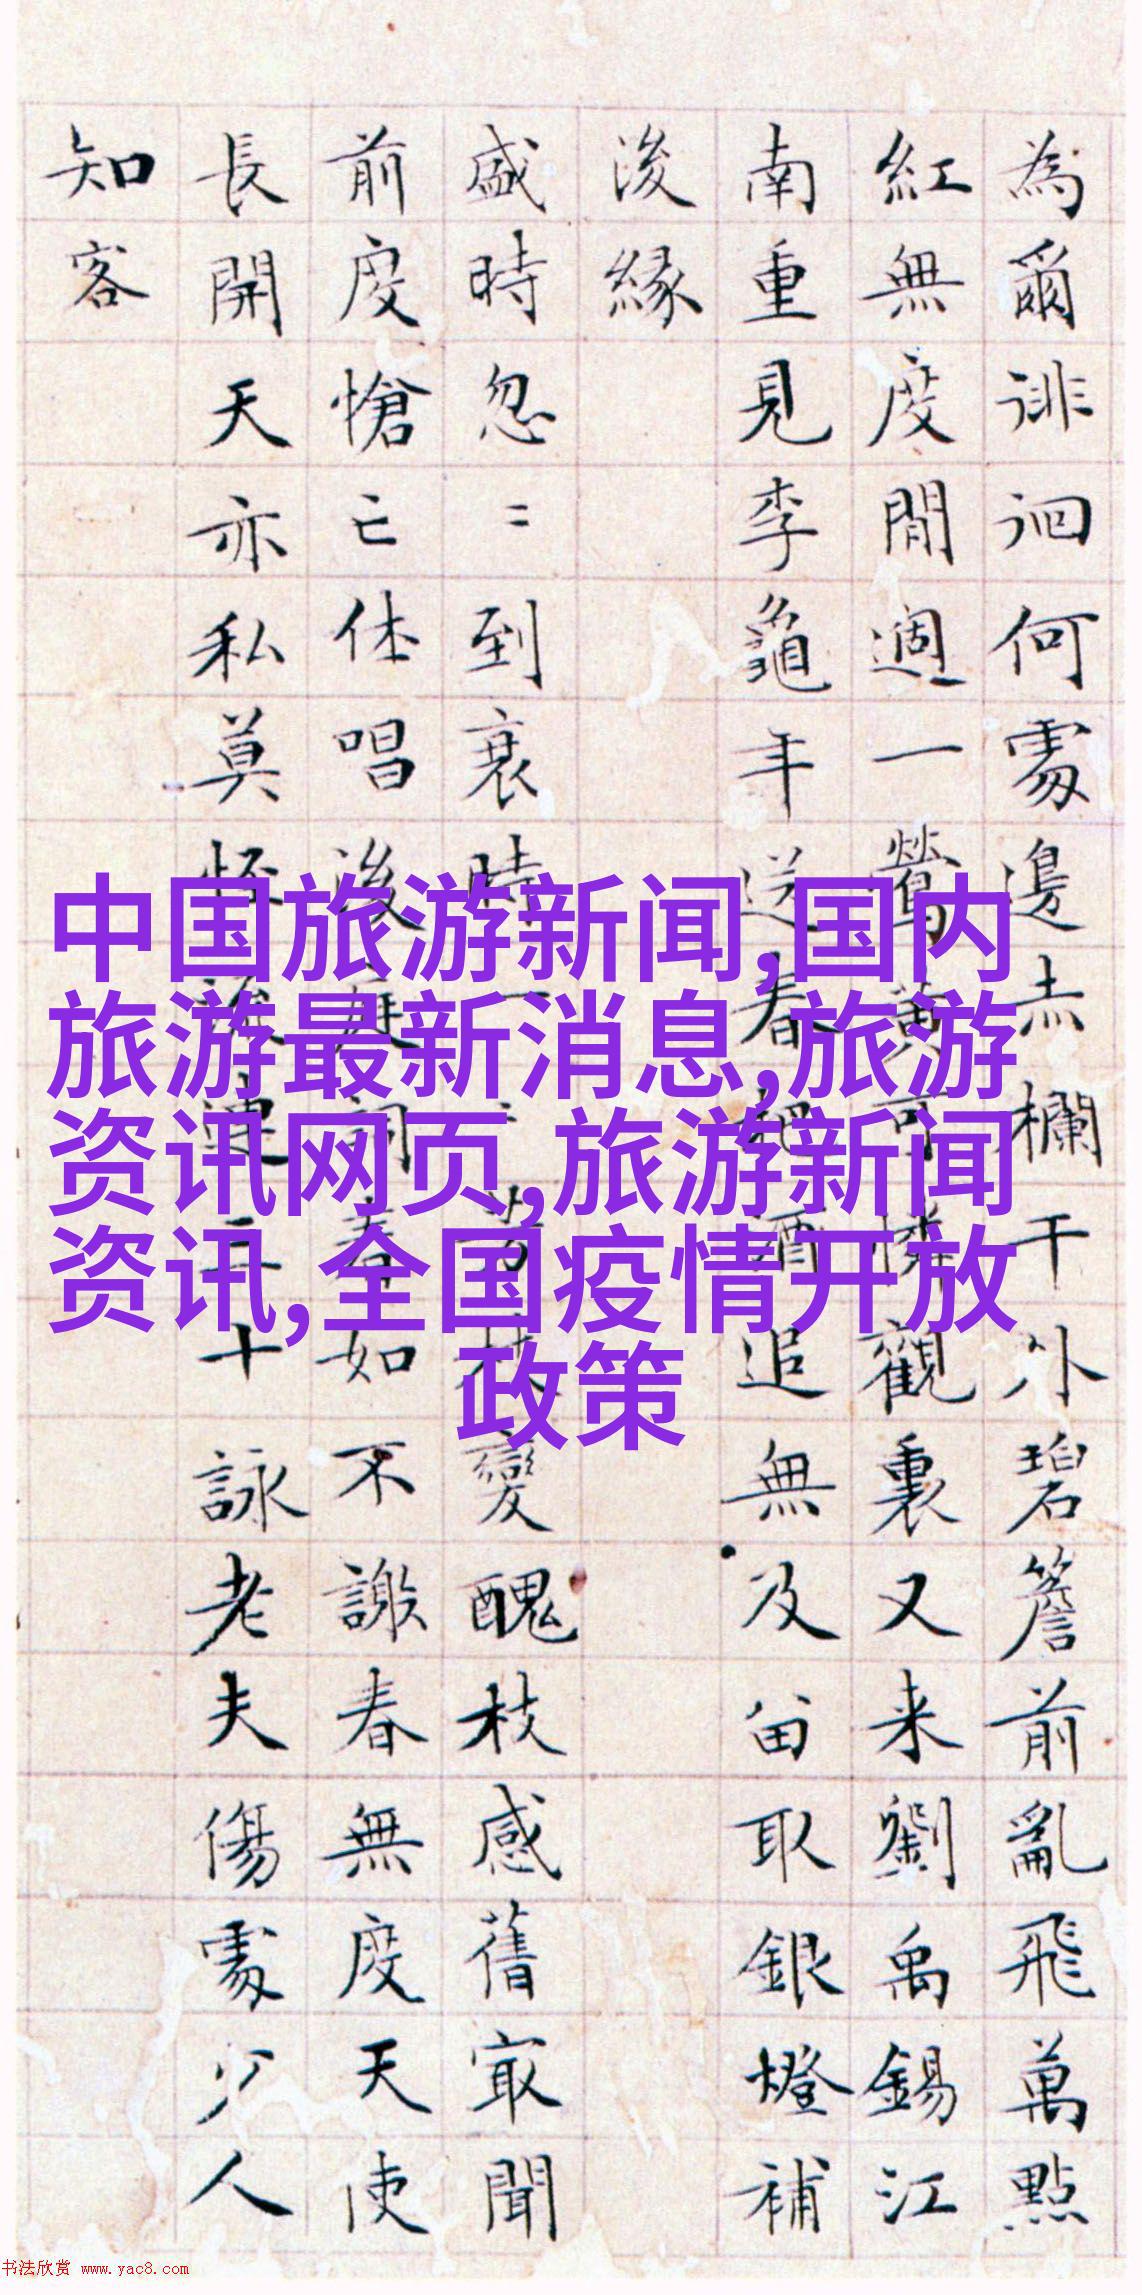 為爾徘徊何處邊赤欄干外碧簷前亂飛萬點
紅無度閒週一鶯黃可憐觀裏又来劉禹錫江
南重見李龜年送春把酒追無及留取銀燈補
後緣
盛時忽〻到衰時一一芳枝變醜枝感舊最聞
前度愴亡休唱後庭詞春如不謝春無度天使
長開天亦私莫怪流連三十詠老夫傷處少人
知客
中国旅游新闻,国内
旅游最新消息,旅游
资讯网页,旅游新闻
资讯,全国疫情开放
政策
书法欣赏 www.yac8.com